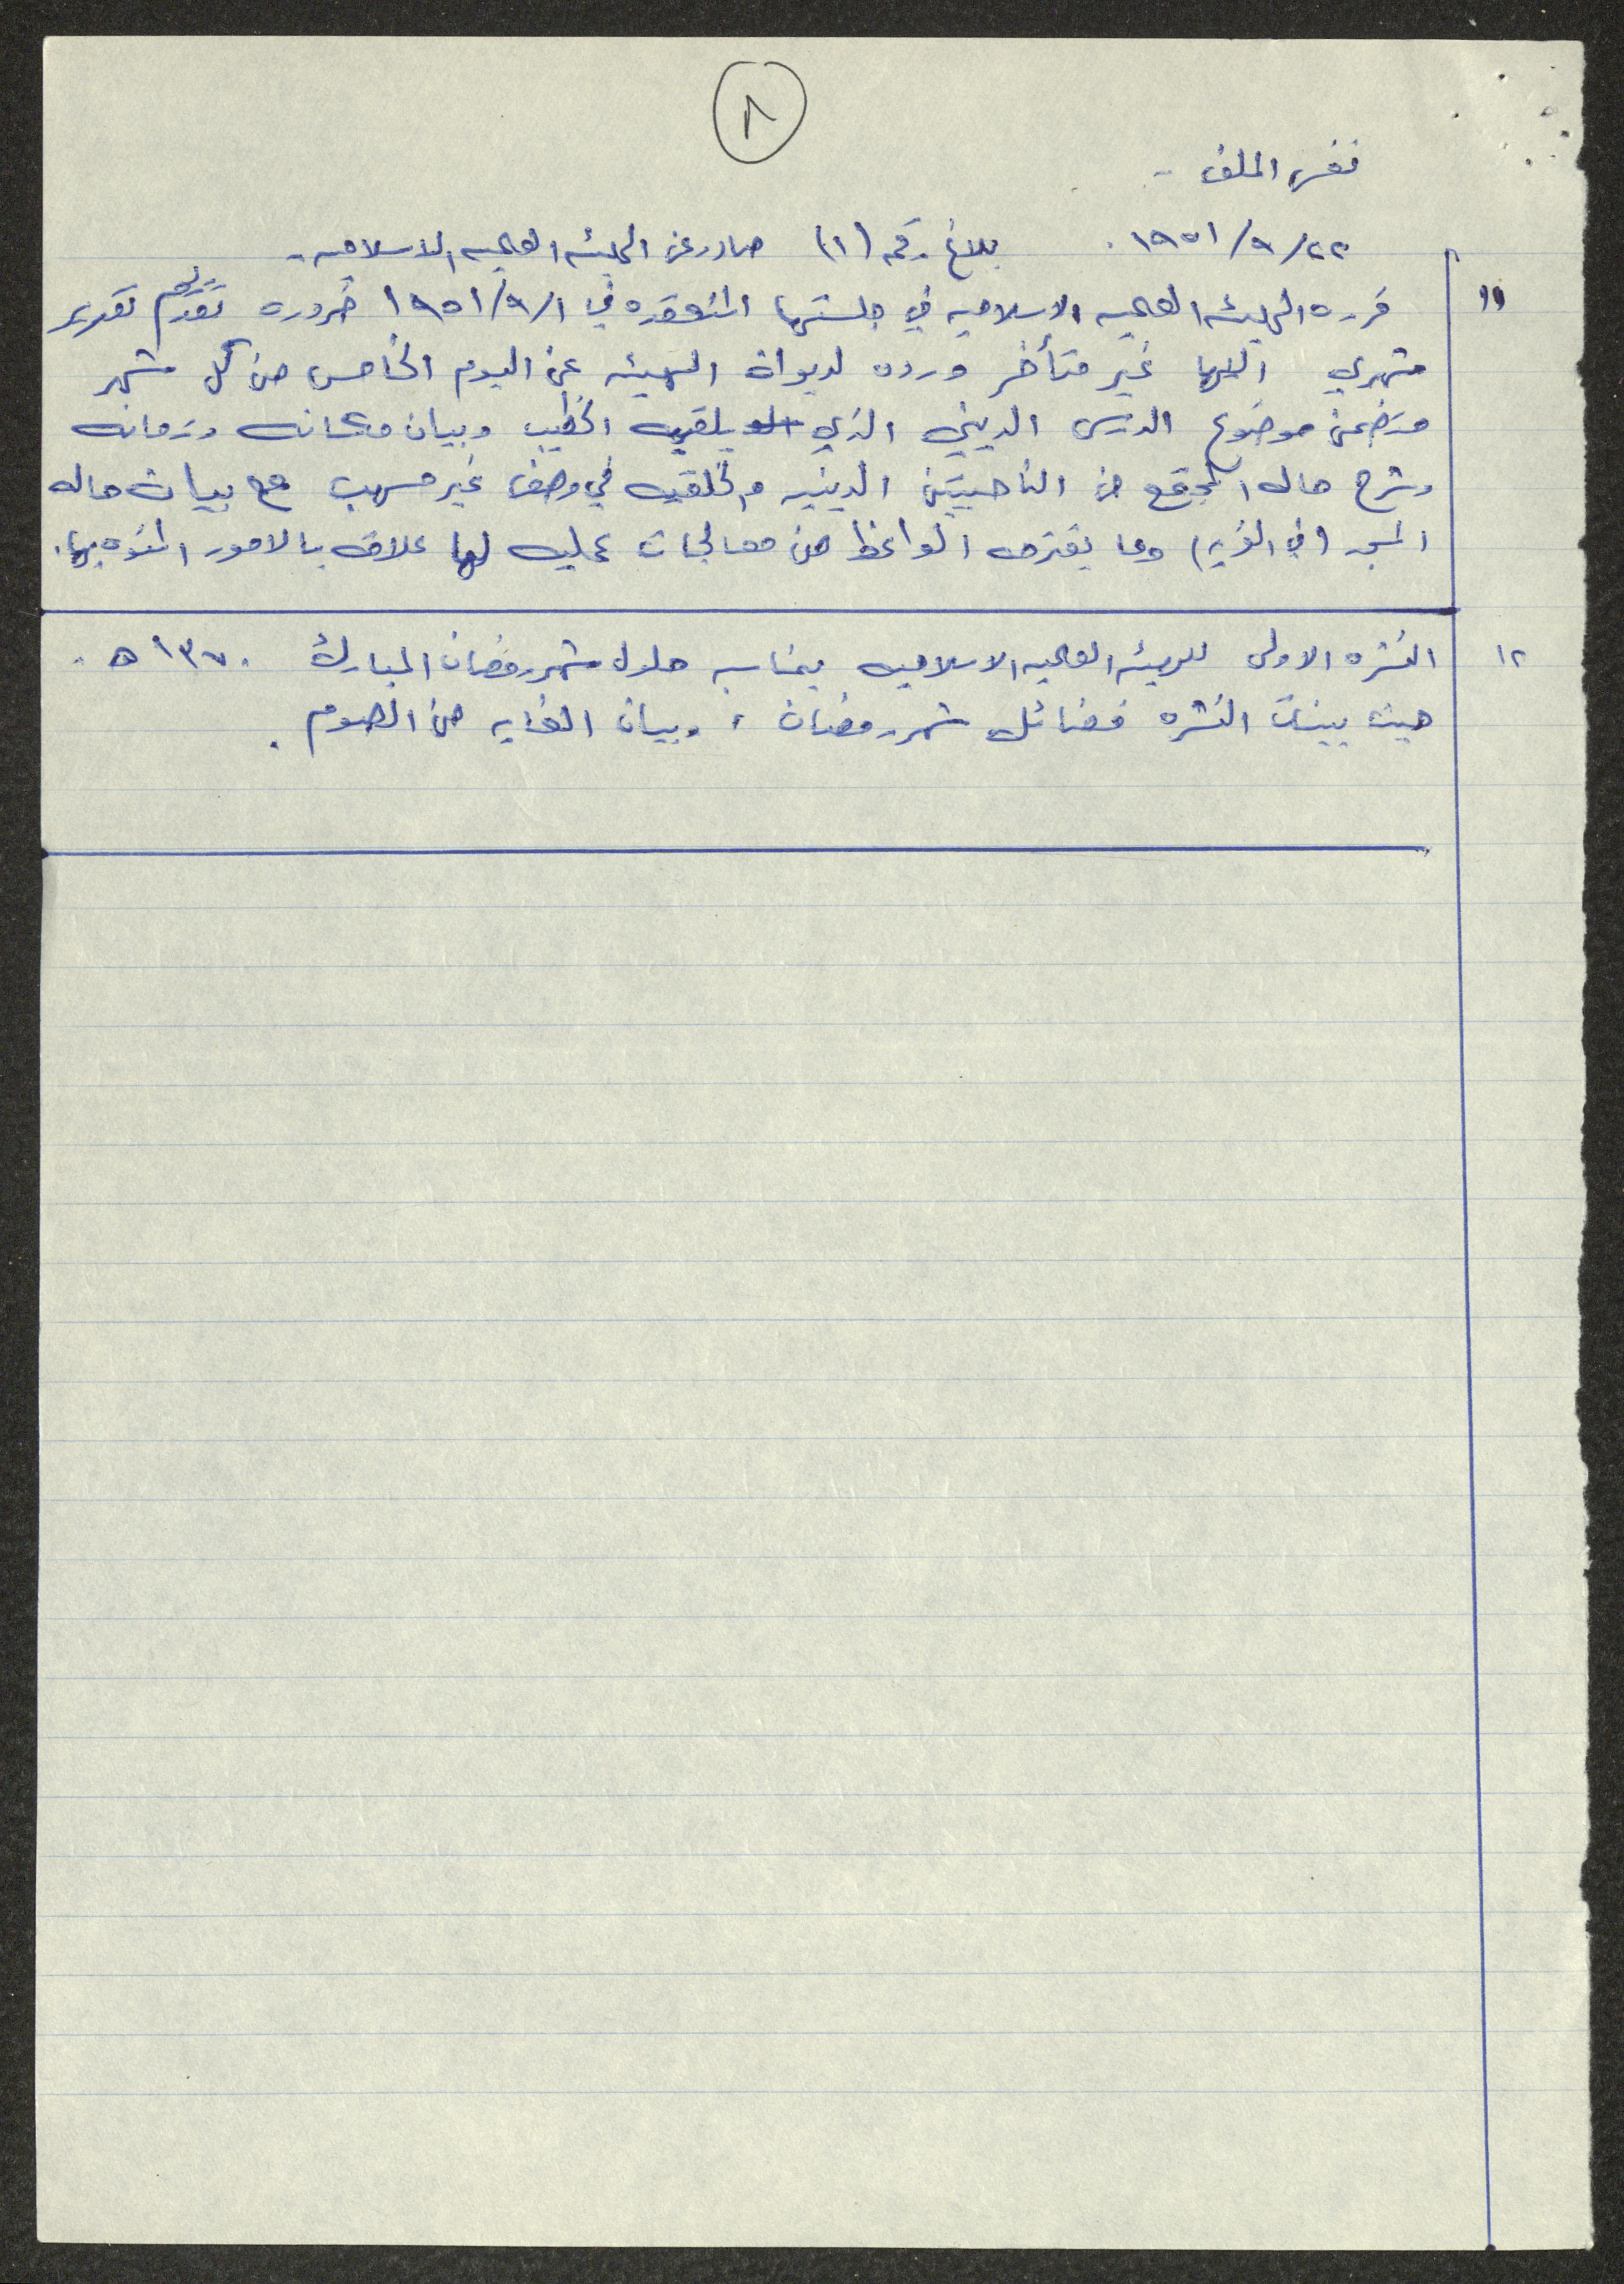 ٨
نفس الملف -
٢٢/٩/١٩٥١. بلاغ رقم (١) صادر عن الهيئه العلميه الاسلاميه -
١١ قررت الهيئه العلميه الاسلاميه في جلستها المنعقده في ١/٩/١٩٥١ ضروره تقديم تقرير
شهري اليها غير متأخر وروده لديوان الهيئه عن اليوم الخامس من كل شهر
متضمن موضوع الدرس الديني الذي يلقيه الخطيب وبيان مكانه وزمانه
وشرح حاله المجتمع من الناحيتين الدينيه والخلقيه في وصف غير مسهب مع بيان حاله
المسجد (في القريه) وما يقترحه الواعظ من معالجات عمليه لها علاقه بالامور المنوه بها.
١٢ النشره الاولى للهيئه العلميه الاسلاميه بمناسبه حلول شهر رمضان المبارك ١٣٧٠ ه.
حيث بينت النشره فضائل شهر رمضان، وبيان الغايه من الصوم.